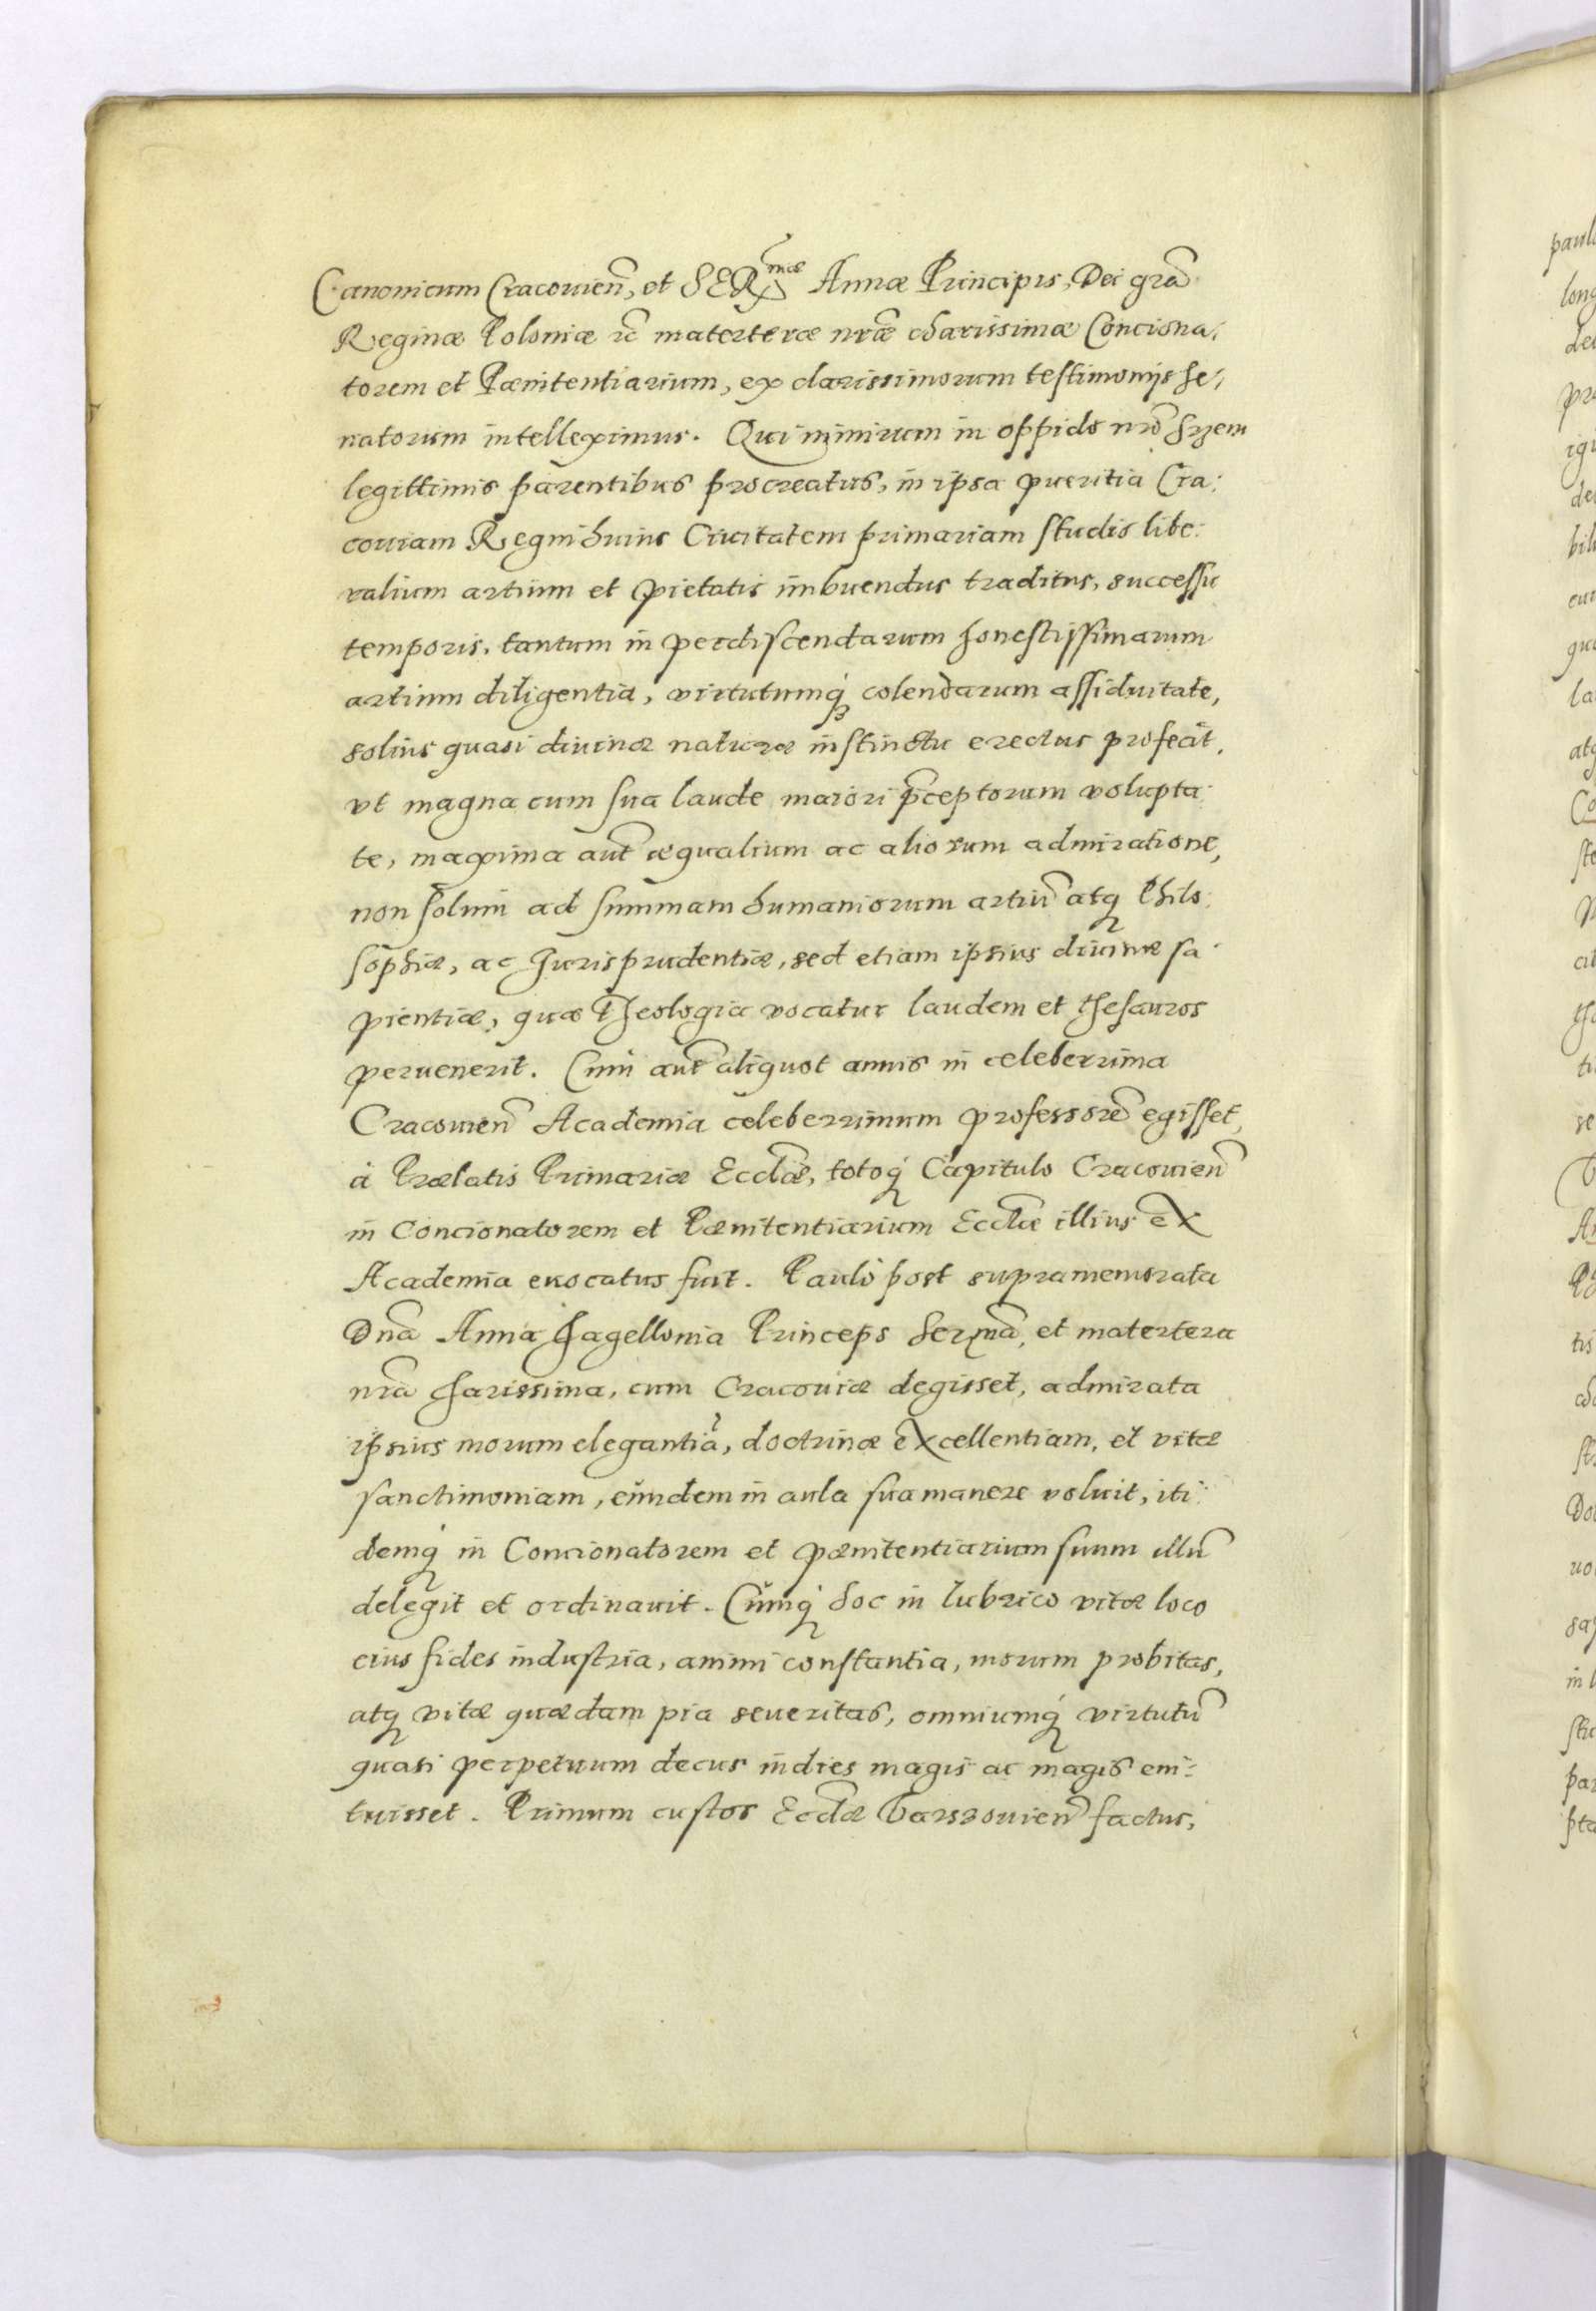 Canonicum Cracouien̄, et SERmæ Annæ Principis, Dei grã
Reginæ Poloniæ &c̃ materteræ nræ̃ charissimæ Conciona,
torem et Pœnitentiarium, ex clarissimorum testimonijs Se,
natorum intelleximus. Qui nimirum in oppido nrõ Srzem
legittimis parentibus procreatus, in ipsa pueritia Cra:
couiam Regni huius Ciuitatem primariam studis libe:
ralium artium et pietatis imbuendus traditus, successu
temporis, tantum in perdiscendarum honestissimarum
artium diligentia, virtutumq́ colendarum assiduitate,
solius quasi diuinæ naturæ instinctu erectus profecit,
vt magna cum sua laude maiori p̃ceptorum volupta:
te, maxima aut̃ æqualium ac aliorum admiratione,
non solum ad summam humaniorum artiũ atq Philo:
sophiæ, ac Jurisprudentiæ, sed etiam ipsius diuinæ sa:
pientiæ, quæ Theologia vocatur laudem et thesauros
peruenerit. Cum aut̃ aliquot annis in celeberrima
Cracouien̄ Academia celeberrimum professorẽ egisset,
à Prælatis Primariæ Eccłæ, totoq́ Capitulo Cracouien̄
in Concionatorem et Pœnitentiarium Eccłæ illius ex
Academia euocatus fuit. Paulò post supramemorata
Dnã Anna Jagellonia Princeps Serĩnã, et matertera
nrã charissima, cum Cracouiæ degisset, admirata
ipsius morum elegantiã, doctrinæ excellentiam, et vitæ
sanctimoniam, eundem in aula sua manere voluit, iti:
demq́ in Concionatorem et pœnitentiarium suum illũ
delegit et ordinauit. Cumq́ hoc in lubrico vitæ loco
eius fides industria, animi constantia, morum probitas,
atq vitæ quædam pia seueritas, omniumq́ virtutũ
quasi perpetuum decus indies magis ac magis eni:
tuisset. Primum custos Eccłæ Varssouien̄ factus,